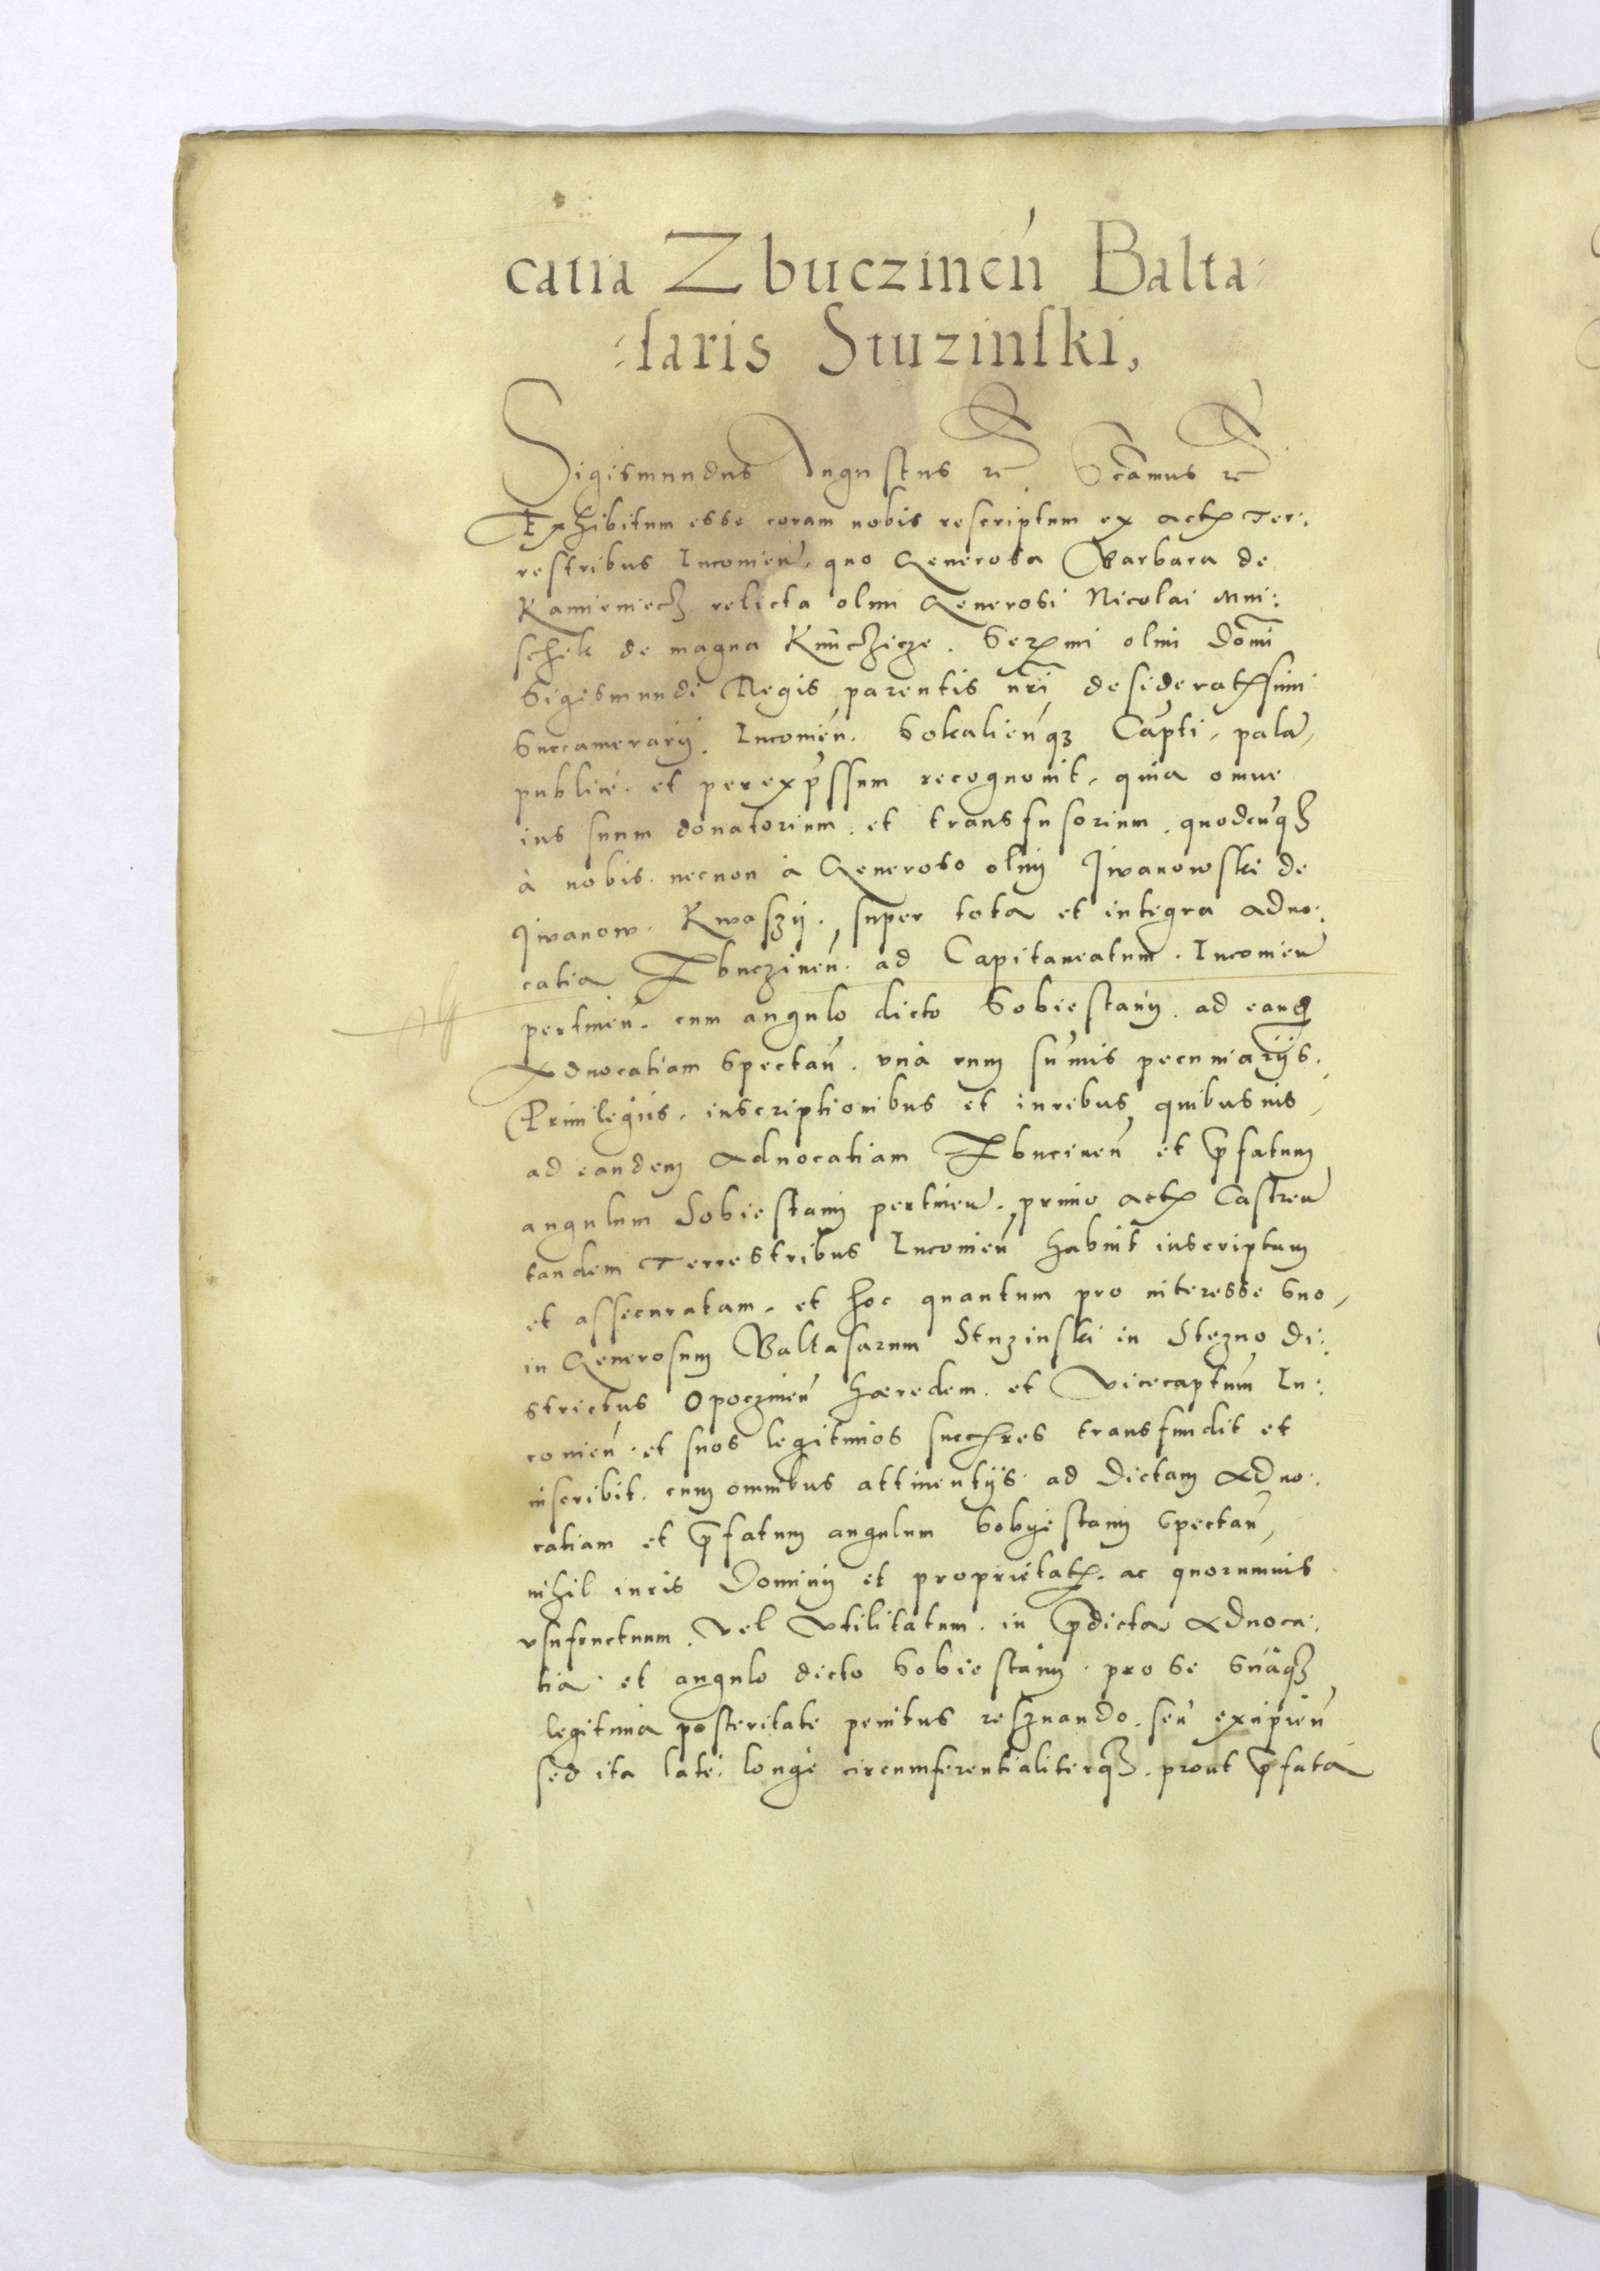 catia Zbuczineń Balta-
-saris Stuzinski,
Sigismundus Augustus etc. Scamus etc.
Exhibitum esse coram nobis rescriptum ex actis Ter:
restribus Lucovień. quo Generosa Barbara de
Kamieniecz relicta olim Generosi Nicolai Mni:
schek de magna Kunczicze. Serẽmi olim Domĩ
Sigismundi Regis parentis nr̃i desideratissimi
Succamerarij. Lucovień. Sokalieńqz Capti, pala,
publicé. et per exp̃ssum recognouit, quia omne
ius suum donatorium. et transfusorium. quodcũqz
à nobis. necnon à Generoso olim Iwanowski de
Iwanow. Kwaszij., super tota et integra aduo:
catia Zbuczineń. ad Capitaneatum. Lucovień
pertineń. cum angulo dicto Sobiestanij. ad eandẽ
Aduocatiam Spectań. vnà cum sum̃is pecuniarijs.
Priuilegiis. inscriptionibus et iuribus quibusuis,
ad eandem Aduocatiam Zbucineń et p̃fatum
angulum Sobiestanij pertineń., primo actis Castreń
tandem Terrestribus Lucovień habuit inscriptum
et assecuratam. et hoc quantum pro interesse suo,
in Generosum Baltasarum Stuzinski in Stezno Di:
strictus Opoczineń hæredem. et Vicecaptum Lu:
covień. et suos legitimos succ̃res transfundit et
inscribit. cum omnibus attinentijs. ad dictam Aduo:
catiam et p̃fatum angulum Sobyestanij Spectań,
nihil iuris Dominij et proprietatis. ac quorumuis
vsufructuum. vel vtilitatum. in p̃dicta Aduoca:
tia. et angulo dicto Sobiestanij. pro se suaqz
legitima posteritate penitus reseruando. seu excipień
sed ita laté. longé circumferentialiterqz. prout p̃fata